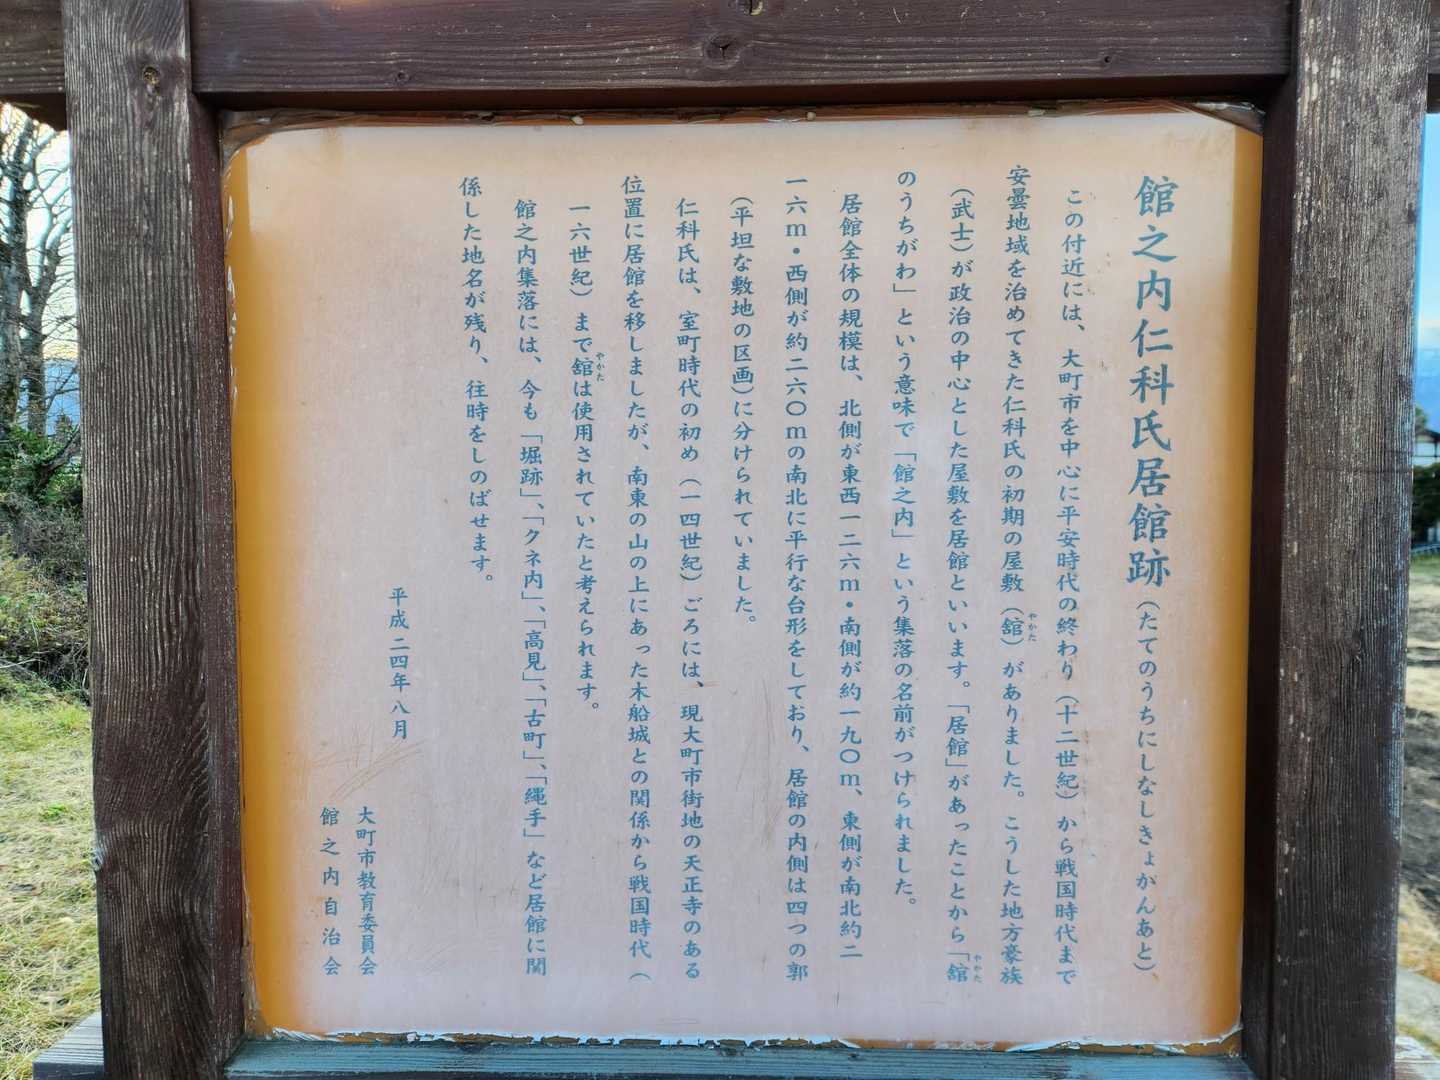 館之内仁科氏居館跡(たてのうちにしなしきょかんあと)
この付近には、大町市を中心に平安時代の終わり(十二世紀)から戦国時代まで
安曇地域を治めてきた仁科氏の初期の屋敷(舘やかた)がありました。こうした地方豪族
(武士)が政治の中心とした屋敷を居館といいます。「居館」があったことから「舘やかた
のうちがわ」という意味で「館之内」という集落の名前がつけられました。
居館全体の規模は、北側が東西一二六m・南側が約一九〇m、東側が南北約二
一六m・西側が約二六〇mの南北に平行な台形をしており、居館の内側は四つの郭
(平坦な敷地の区画)に分けられていました。
仁科氏は、室町時代の初め(一四世紀)ごろには、現大町市街地の天正寺のある
位置に居館を移しましたが、南東の山の上にあった木船城との関係から戦国時代(
一六世紀)まで舘やかたは使用されていたと考えられます。
館之内集落には、今も「堀跡」、「クネ内」、「高見」、「古町」、「縄手」など居館に関
係した地名が残り、往時をしのばせます。
平成二四年八月
大町市教育委員会
館之内自治会